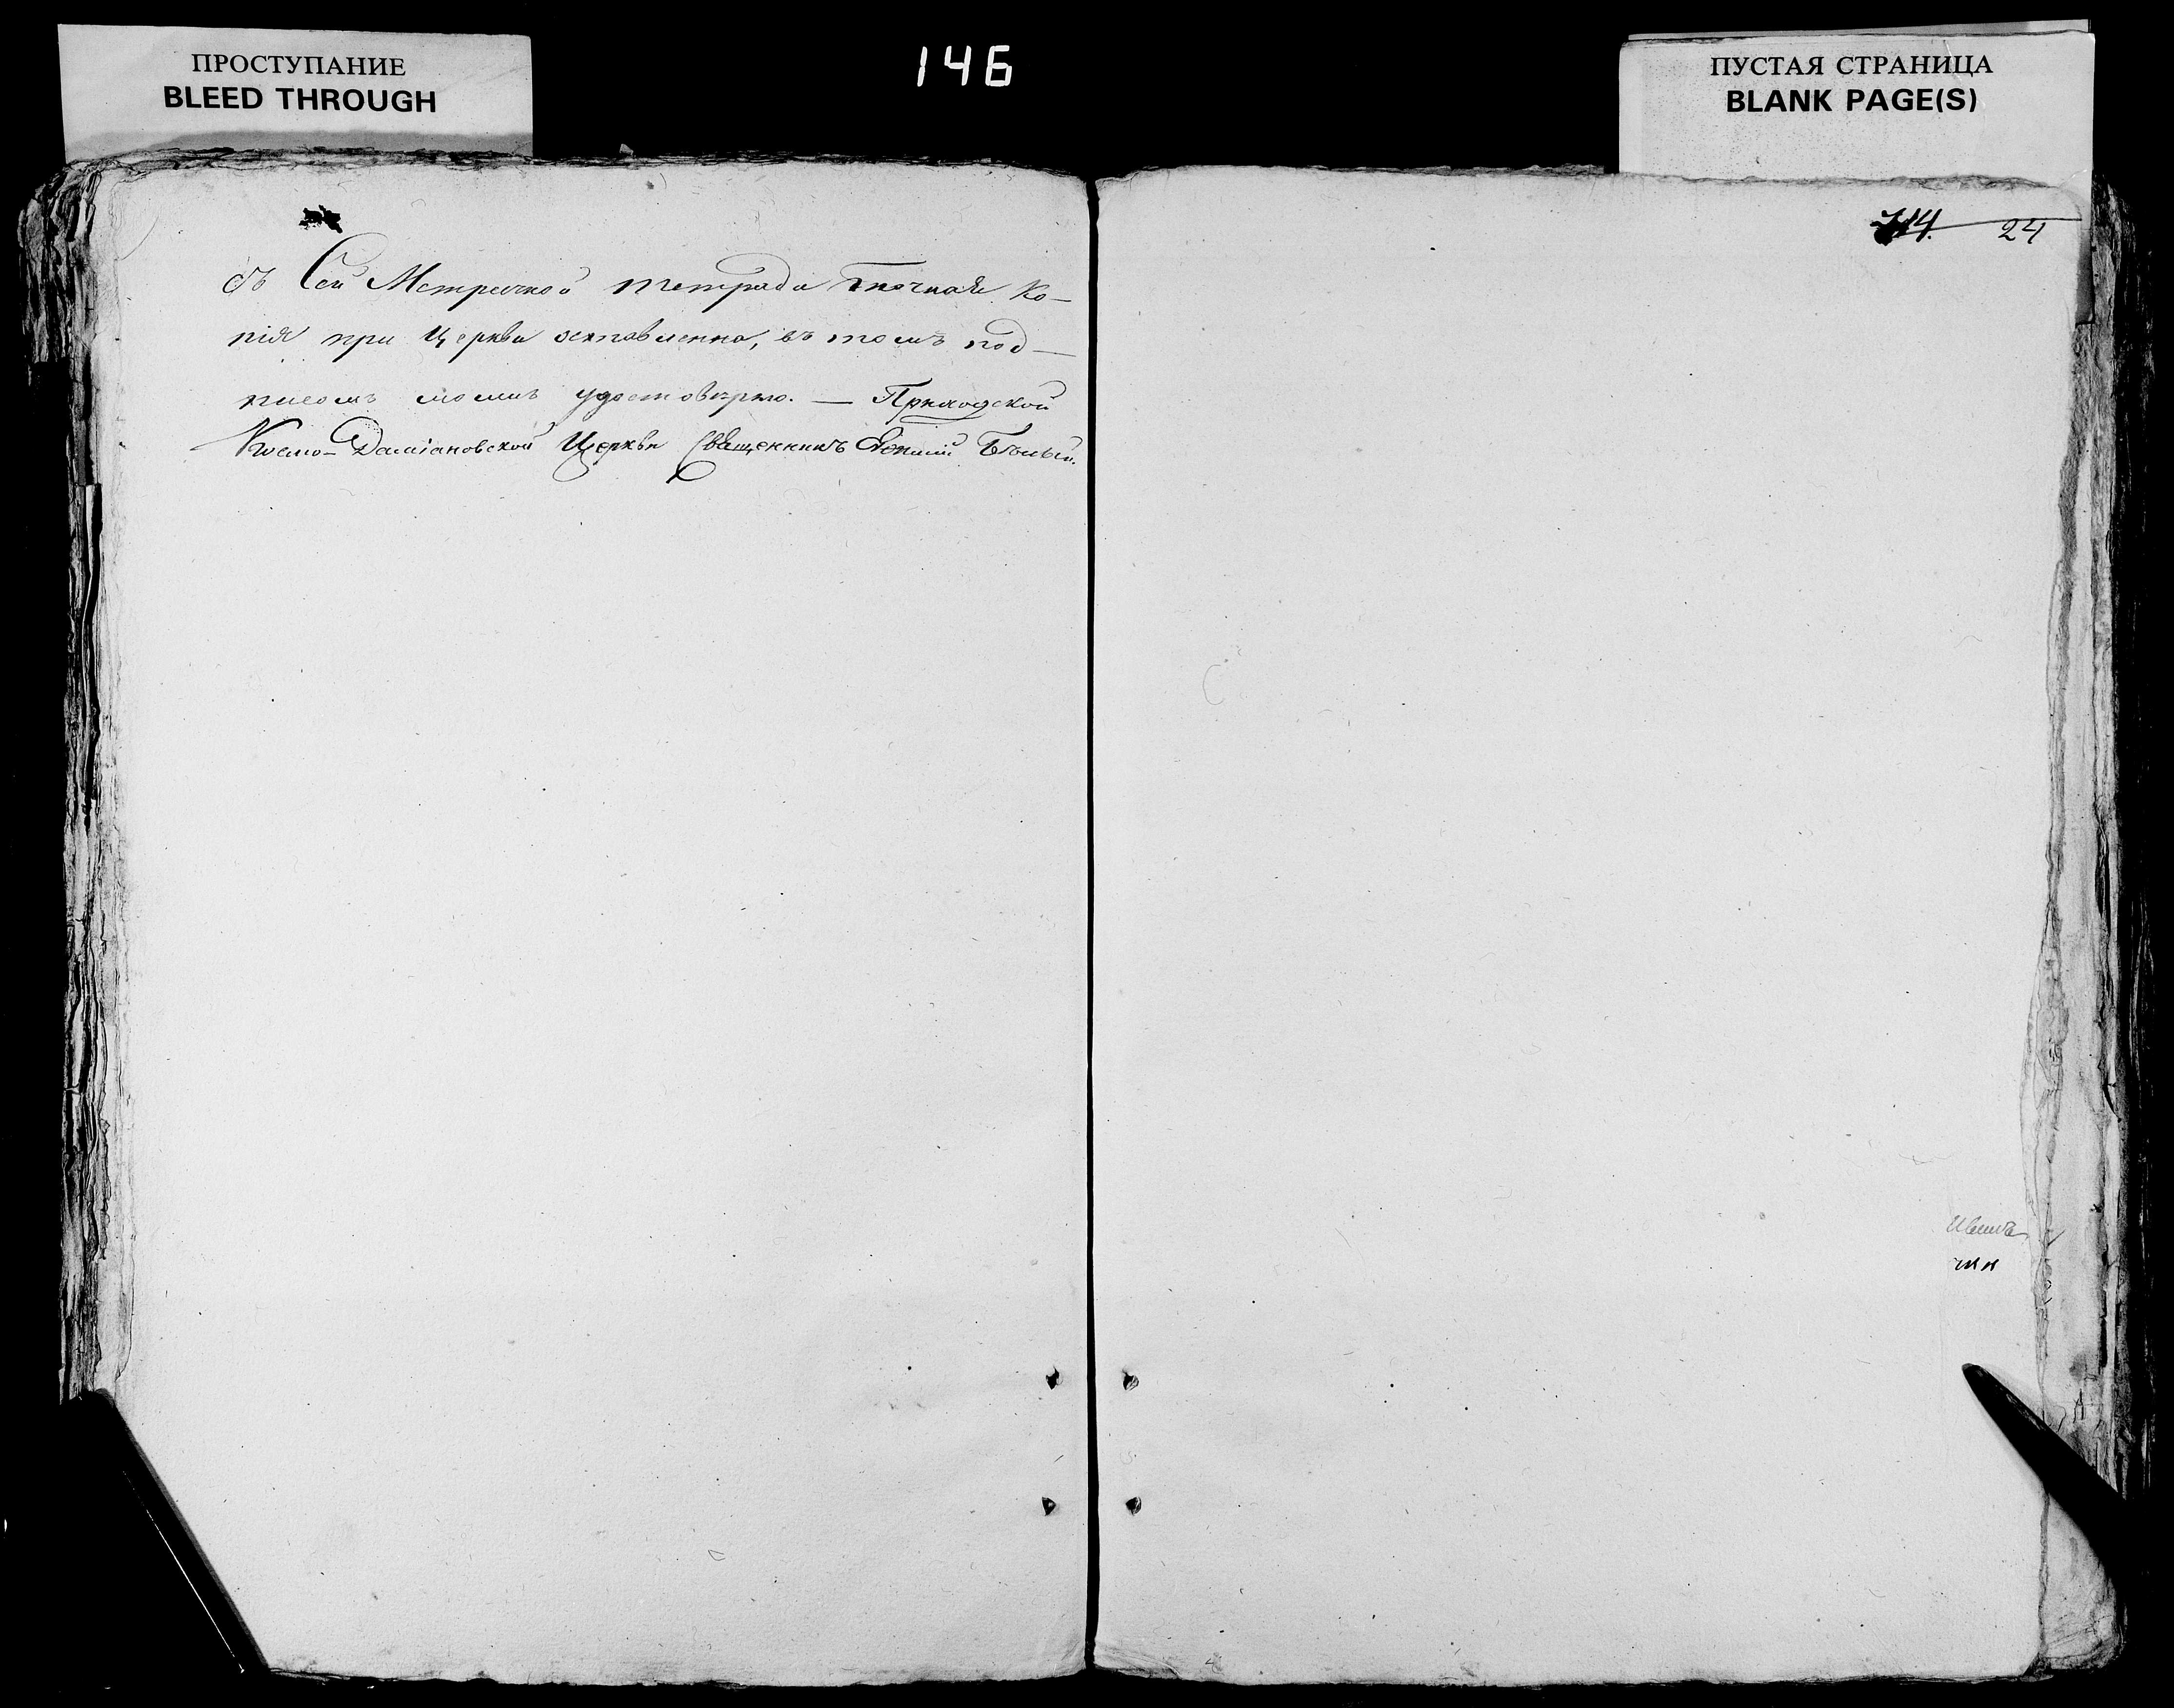 ПРОСТУПАНИЕ
BLEED THROUGH
146
ПУСТАЯ СТРАНИЦА
BLANK PAGE(S)
114. 24
Съ Сей Метречной тетради точная Ко-
пія при Церкви оставленна, въ томъ под-
писомъ моимъ удостовѣряю. — Приходской
Космо-Даміановской Церкви Священникъ Бѣлый.